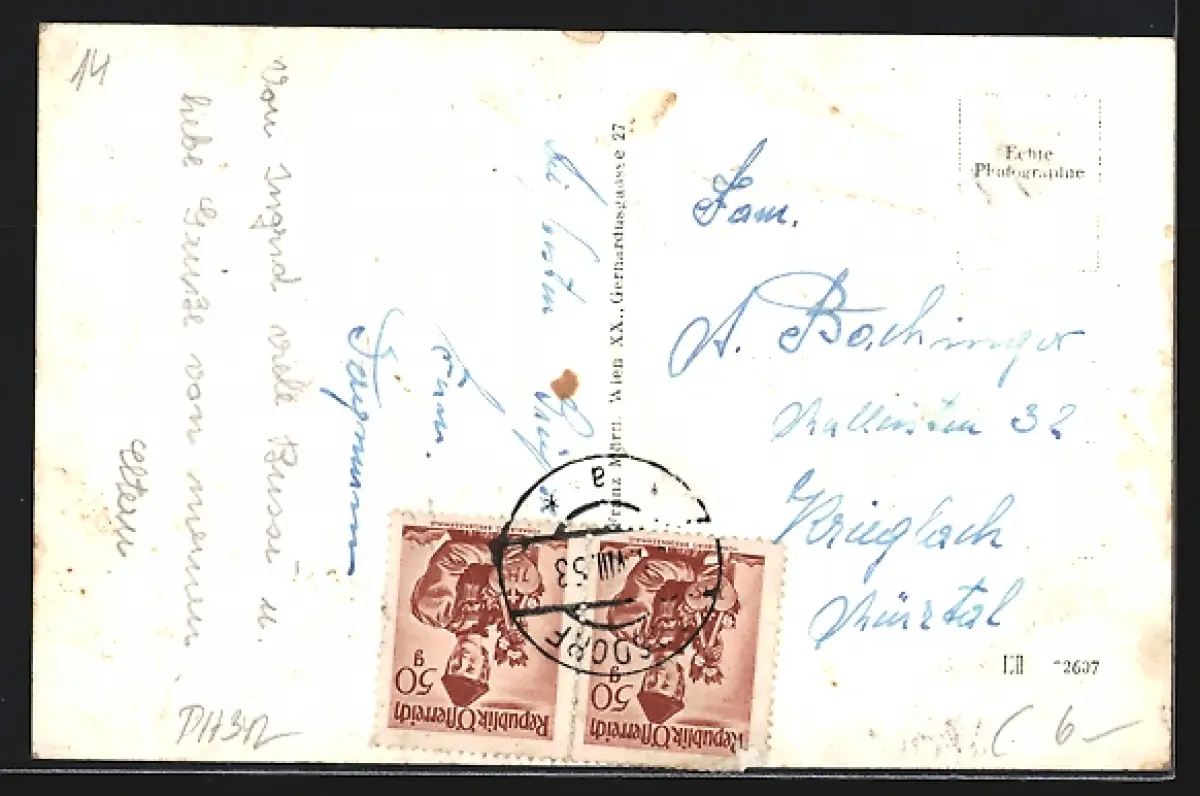 14
Von Ingrid viele Bussi u.
liebe Grüße von meinen
Eltern
Fam.
Echte
Photographie
Franz Mörn, Wien XX., Gerhardusgasse 27
Fam.
A. Bachinger
32
Krieglach
Mürztal
LII 2607
VIII.53
SDORF
a
50 g
Republik Österreich
50 g
Republik Österreich
6-